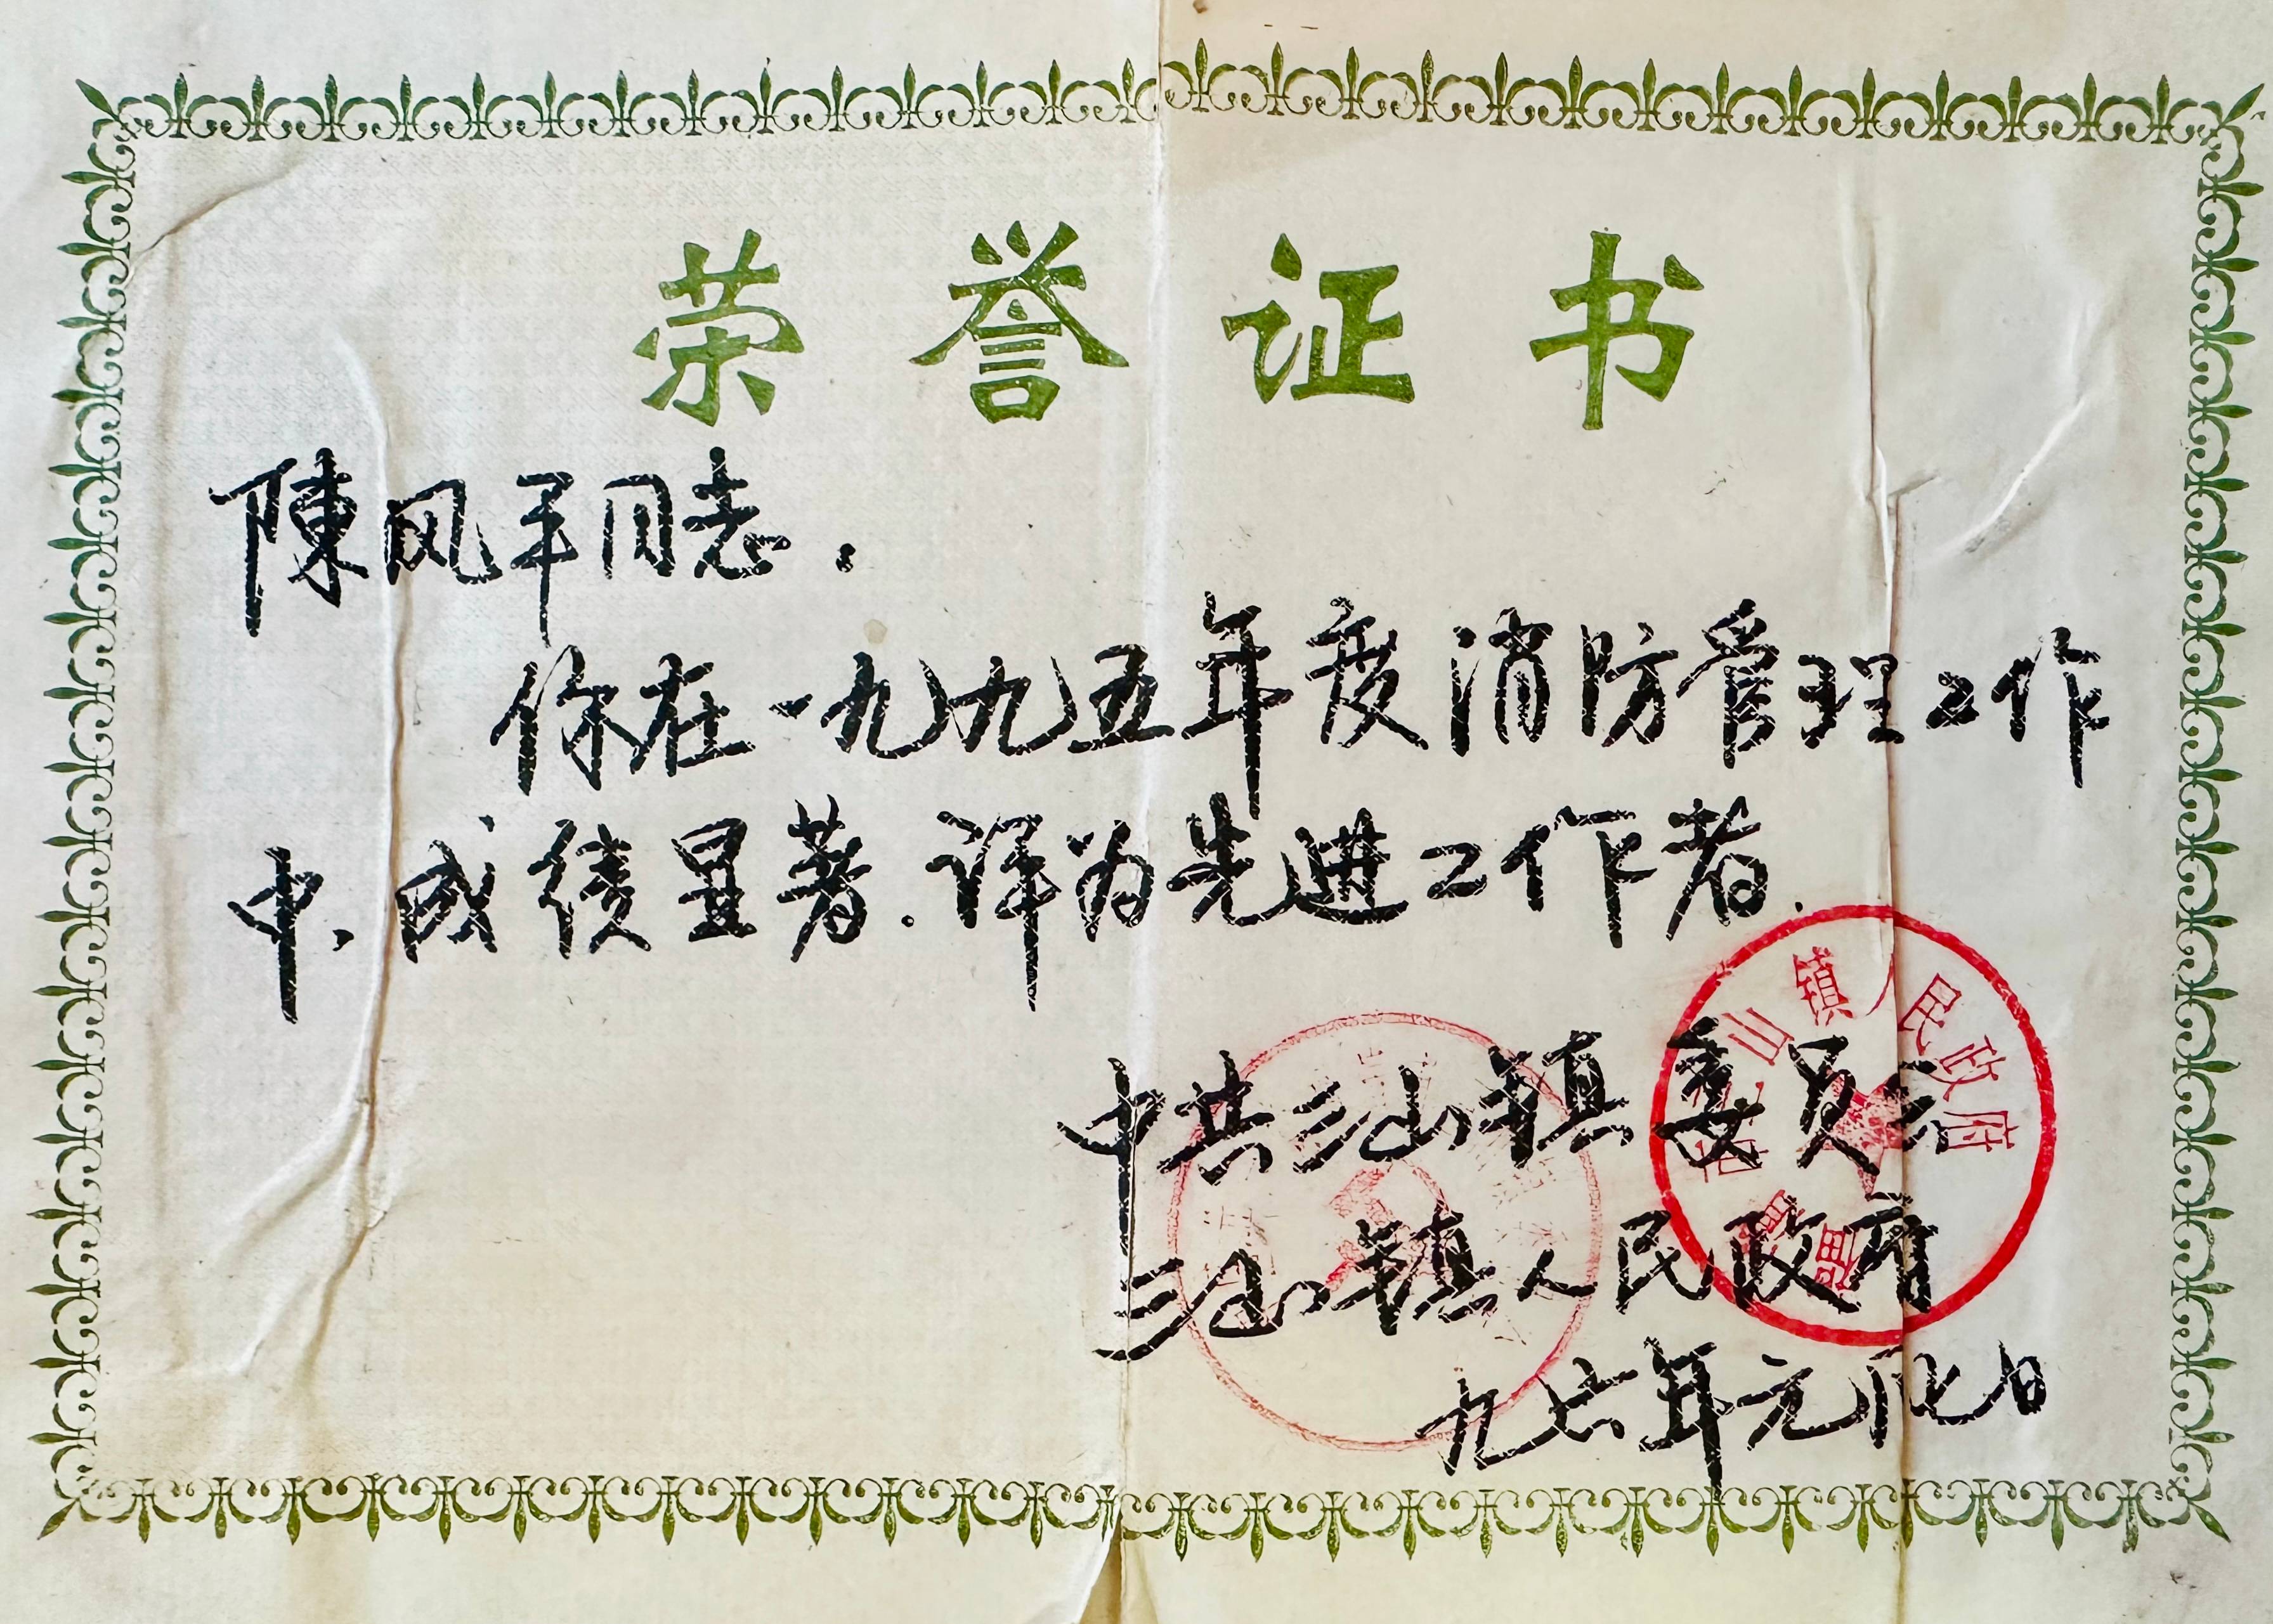 荣誉证书
陳风平同志.
你在一九九五年度消防管理工作
中、成绩显著.评为先进工作者.
中共三山镇委员会
三山镇人民政府
九六年元月日
三山镇人民政府